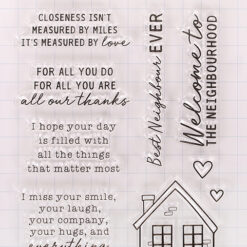 CLOSENESS ISN'T
MEASURED BY MILES
IT'S MEASURED BY love
FOR ALL YOU DO
FOR ALL YOU ARE
all our thanks
I hope your day
is filled with
all the things
that matter most
I miss your smile,
your laugh,
your company,
your hugs, and
everything
Best Neighbour EVER
Welcome to
THE NEIGHBOURHOOD